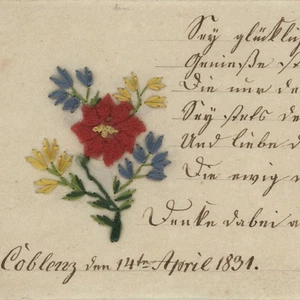 Sey glücklich
Genieße
Die nur de
Sey stets de
Und liebe d
Die ewig
Denke dabei a
Coblenz den 14ten April 1831.